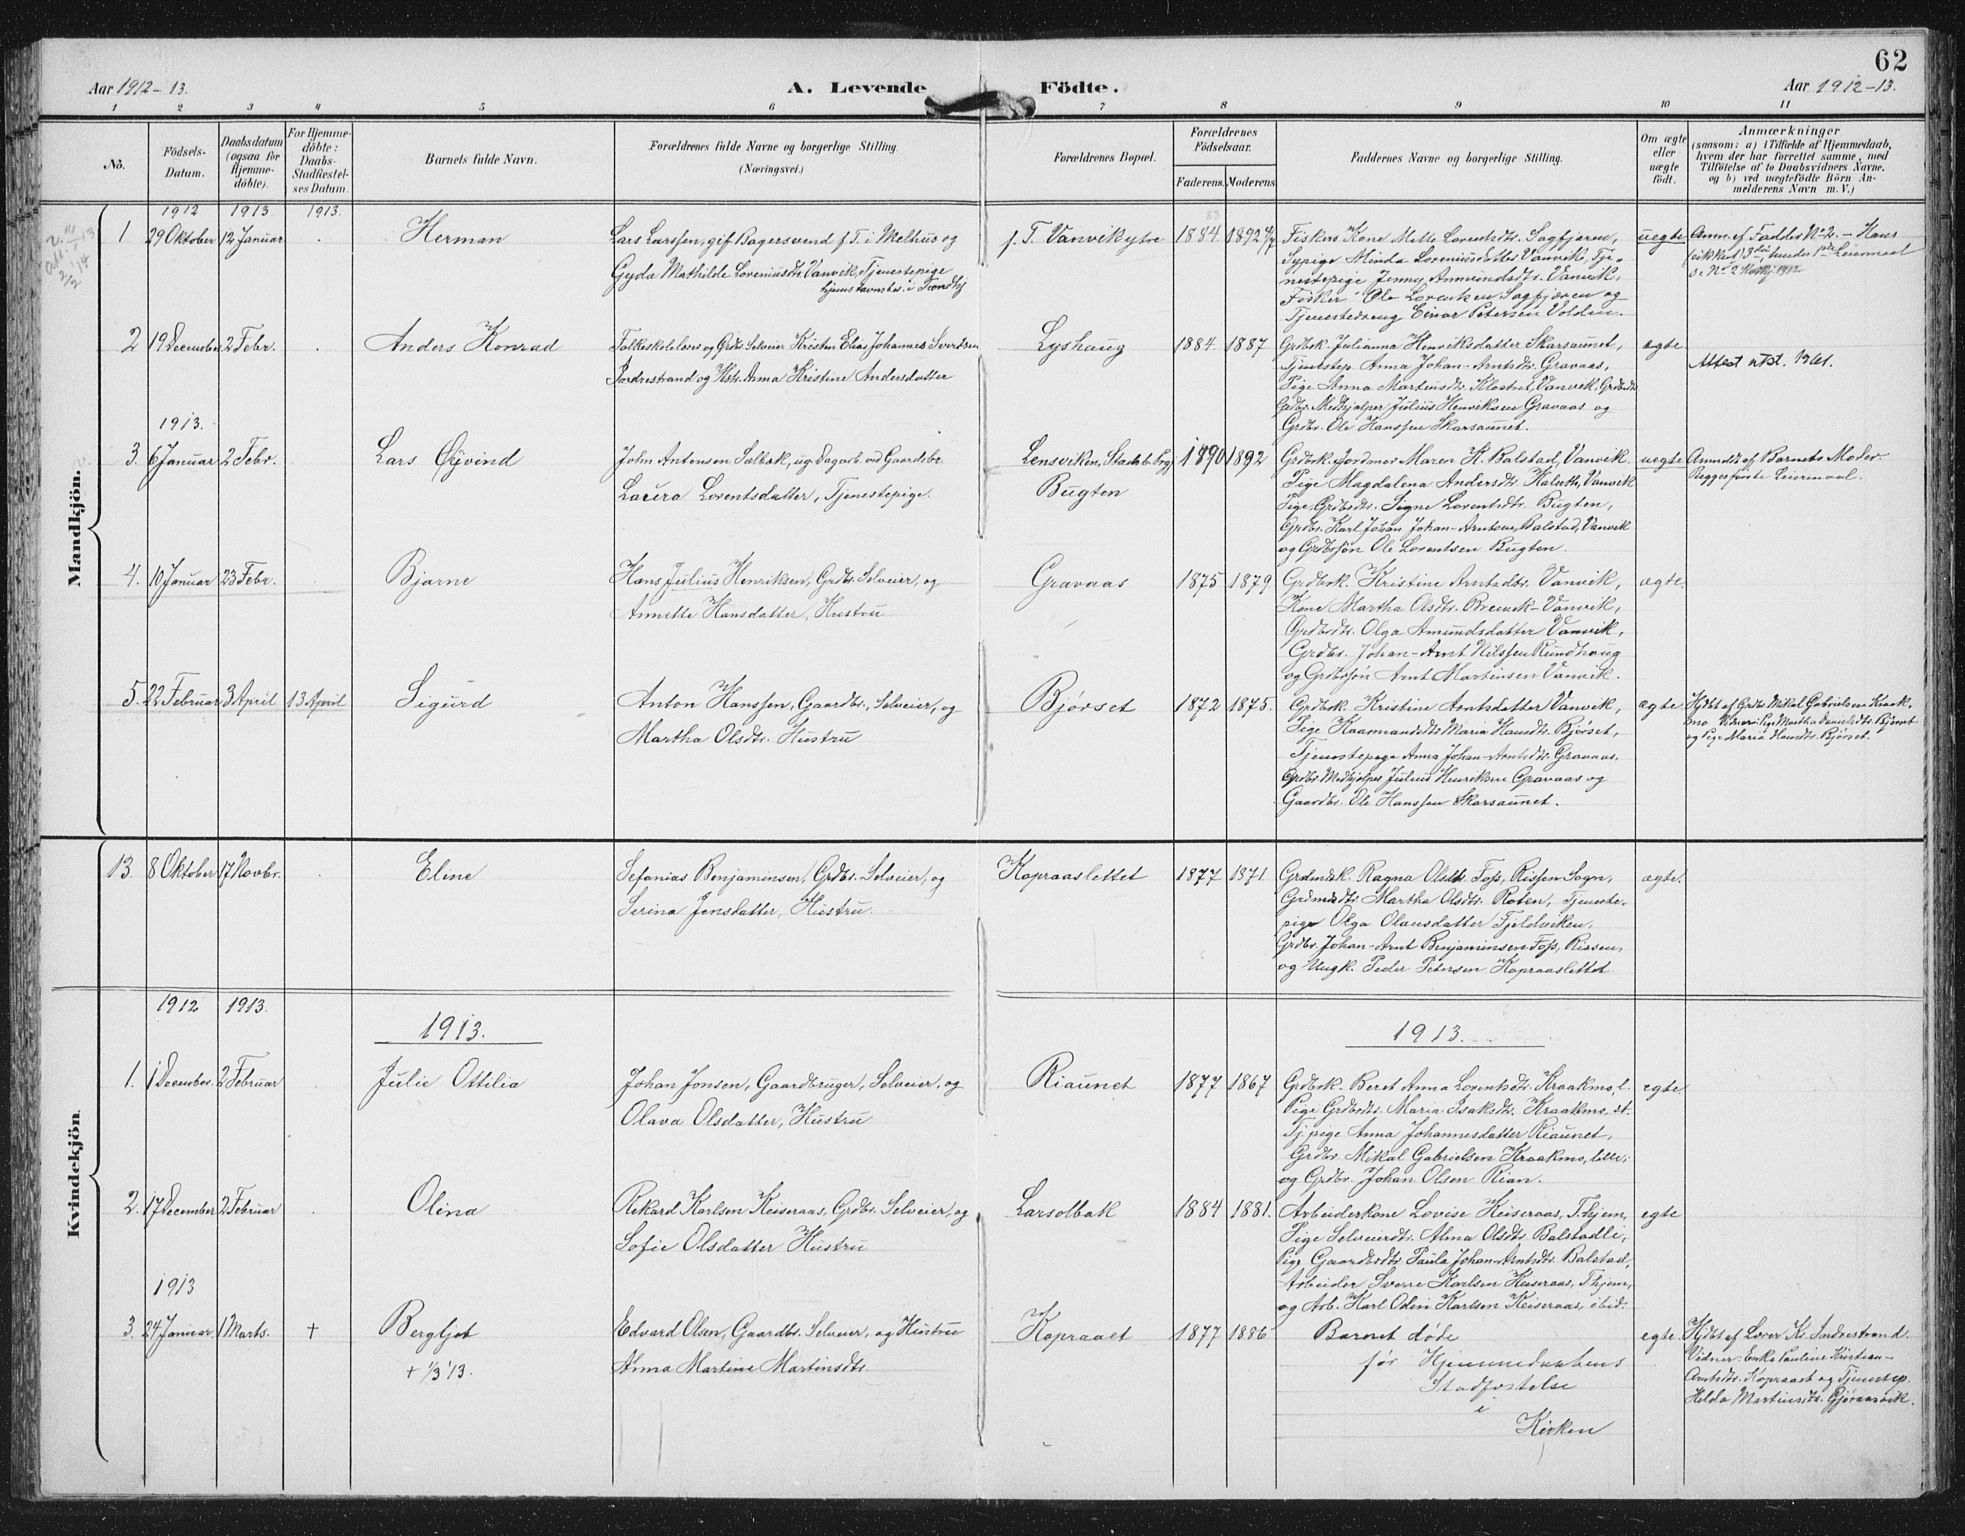 62
Aar 1912-13.
A. Levende Födte.
Aar 1912-13.
1 2 3 4 5 6 7 8 9 10 11
Nō.
Födsels-
Datum.
Daabsdatum
(ogsaa for
Hjemme-
döbte).
For Hjemme-
döbte:
Daabs-
Stadfæstel-
ses Datum.
Barnets fulde Navn.
Forældrenes fulde Navne og borgerlige Stilling.
(Næringsvei.)
Forældrenes Bopæl.
Forældrenes
Födselsaar.
Faderens. Moderens.
Faddernes Navne og borgerlige Stilling.
Om ægte
eller
uægte
födt.
Anmærkninger
(saasom: a) i Tilfælde af Hjemmedaab,
hvem der har forrettet samme, med
Tilföielse af to Daabsvidners Navne.
og b) ved uægtefödte Börn An-
melderens Navn m. V.)
Mandkjön.
1912 1913 1913.
1 29 Oktober 12 Januar
Herman
Lars Larssen, gift Bagersvend f. T. i Melhus og
Gyda Mathilde Loreniusdtr. Vanvik, Tjenestepige
hjemstavnsber. i Trondhj
f. T. Vanvikytre
1884. 1892
Fiskers Kone Mette Lorentsdtr. Sagfjæren,
Sypige Minda Loreniusdatter Vanvik, Tje-
nestepige Jenny Anmundsdtr. Vanvik,
Fisker Ole Lorentsen Sagfjæren og
Tjenestedreng Einar Petersen Volden.
uegte
Anm. af Fadder No 2. - Hans
2 19 December 2 Febr.
Anders Konrad
Folkeskolelærer og Grdbr. Selveier Kristen Elias Johannes Sverdsen
Indrestrand og Hstr. Anna Kristine Andersdatter
Lyshaug
1884. 1887
Grdbrk. Julianna Henriksdatter Skarsaunet,
Tjenstep. Anna Johan-Arntsdtr. Gravaas,
Pige Anna Martinsdtr. Klostret, Vanvik, Grdbrdtr.
Grdbr. Medhjælper Julius Henriksen Gravaas og
Grdbr. Ole Hanssen Skarsaunet.
ægte
Attest utst. 1961.
1913.
3. 6 Januar 2 Febr.
Lars Øyvind
John Antonsen Sælbak, ug. Dagarb. ved Gaardsbr.
Laura Lorentsdatter, Tjenestepige.
Lensviken, Stadsb. Prgj.
Bugten
1890 1892
Grdbrk. Jordmor Maren K. Balstad, Vanvik.
Pige Magdalena Andersdtr. Kalseth, Vanvik
Pige, Grdbrdtr. Signe Lorentsdtr. Bugten,
Grdbr. Karl Johan Johan-Arntsen, Balstad, Vanvik
og Grdbrsøn Ole Lorentsen Bugten.
uegte
Anmeldt af Barnets Moder.
Begges første Leiermaal.
4. 10 Januar 23 Febr.
Bjarne
Hans Julius Henriksen, Grdbr. Selveier, og
Annette Hansdatter, Hustru
Gravaas
1875 1879.
Grdbrk. Kristine Arntsdtr. Vanvik,
Kone Martha Olsdtr. Brenek-Vanvik,
Grdbrdtr. Olga Amundsdatter Vanvik,
Grdbr. Johan-Arnt Nilssen Rundhaug
og Grdbrsøn Arnt Martinsen Vanvik.
ægte.
5. 22 Februar 3 April 13 April
Sigurd
Anton Hanssen, Gaardbr., Selveier, og
Martha Olsdtr. Hustru
Bjørset
1872 1875.
Grdbrk. Kristine Arntsdatter Vanvik,
Pige Kaarmandsdtr Maria Hansdtr. Bjørset,
Tjenestepige Anna Johan-Arntsdtr. Gravaas,
Grdbr. Medhjelper Julius Henriksen Gravaas og
Gaardbr. Ole Hanssen Skarsaunet.
ægte
Hjdbt af Grdbr Mikal Gabrielsen Kraak-
mo. Vidner: Pige Martha Danielsdtr. Bjørset
og Pige Maria Hansdtr. Bjørset.
Kvindekjön.
13. 8 Oktober 17 Novbr.
Eline
Sefanias Benjaminsen, Grdbr. Selveier, og
Serina Jensdatter, Hustru.
Kopraaslettet
1877 1871
Grdmdk. Ragna Olsdtr. Foss, Rissen Sogn,
Grdmdsdtr. Martha Olsdtr. Roten, Tjeneste-
pige Olga Olausdatter Fjeldviken,
Grdbr. Johan-Arnt Benjaminsen Foss, Rissen,
og Ungk. Peder Petersen Kopraaslettet.
ægte.
1912 1913.
1913.
1913.
1. 1 December. 2 Februar
Julie Ottilia
Johan Jonsen, Gaardbruger, Selveier, og
Olava Olsdatter, Hustru
Riaunet
1877 1867
Grdbrk. Beret Anna Lorentsdtr. Kraakmo, l.
Pige Grdbrdtr. Maria Isaksdtr. Kraakmo, st.
Tj.pige Anna Johannesdatter Riaunet,
Grdbr. Mikal Gabrielsen Kraakmo, lille;
og Grdbr. Johan Olsen Rian.
egte.
2. 17 December 2 Februar
Olina
Rikard Karlsen Keiseraas, Grdbr. Selveier, og
Sofie Olsdatter Hustru
Larsolbak
1884 1881.
Arbeiderkone Lovise Keiseraas, T.hjem,
Pige Selveierdtr. Alma Olsdtr. Balstadli,
Pige Gaardbrdtr. Paula Johan-Arntsdtr. Balstad,
Arbeider Sverre Karlsen Keiseraas, T.hjem,
og Arb. Karl Odin Karlsen Keiseraas, ibid.
egte
1913
3. 24 Januar. 1 Marts. +
Bergljot
+ 1/3 '13.
Edvard Olsen, Gaardbr. Selveier, og Hustru
Anna Martine Martinsdtr.
Kopraaet
1877 1886
Barnet døde
før Hjemmedaabens
Stadfæstelse
i
Kirken
egte.
Hjdbt af Lærer Kr. Indrestrand.
Vidner: Enke Pauline Kristian-
Arntsdtr. Kopraaet og Tjenestep.
Helda Martinsdtr. Gjøraasvik.